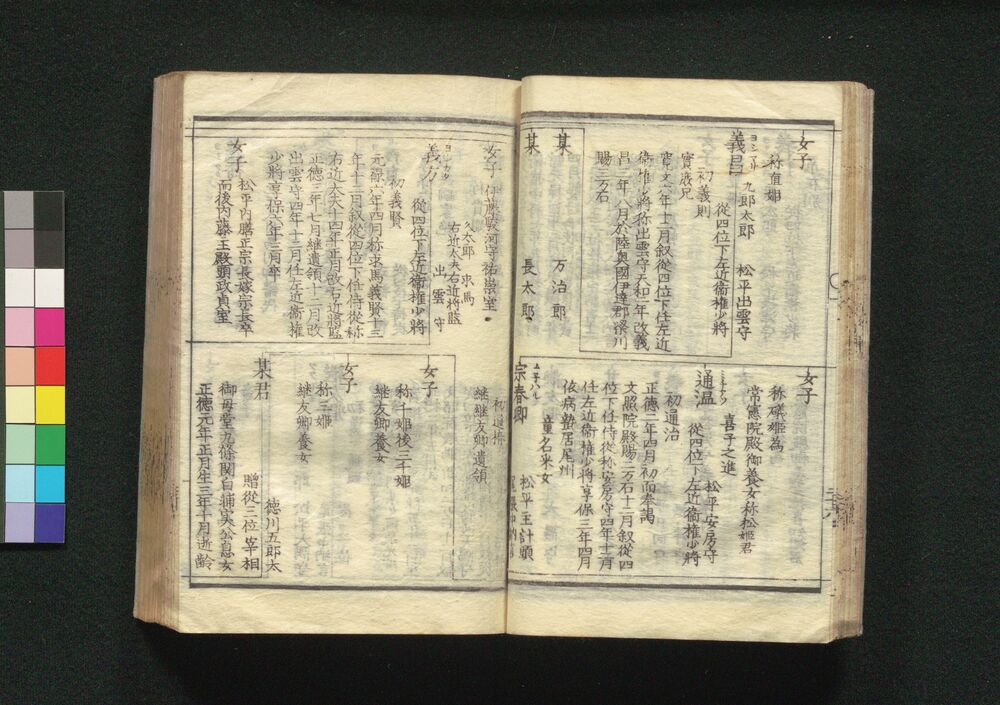 女子
称直姫
ヨシマサ
義昌
九郎太郎
松平出雲守
従四位下左近衛権少将
初義則
實義兄
寛文六年十二月叙従四位下任左近
衛権少将称出雲守天和二年改義
昌三年八月於陸奥國伊達郡梁川
賜三万石
某
万治郎
某
長太郎
女子
称磯姫為
常憲院殿御養女称松姫君
喜子之進
ミチマサ
通温
松平安房守
従四位下左近衛権少将
初通治
正徳二年四月初而奉謁
文照院殿賜三万石十二月叙従四
位下任侍従称安房守四年十二月
任左近衛権少将享保三年四月
依病蟄居尾州
ムネハル
宗春卿
童名米女
松平主計頭
女子
伊藤駿河守祐崇室
ヨシカタ
義方
久太郎
求馬
右近太夫右近将監
出雲守
従四位下左近衛権少将
初義賢
元禄六年四月称求馬義賢十三
年十二月叙従四位下任侍従称
右近太夫十四年正月改右近将監
正徳三年七月継遺領十二月改
出雲守四年十二月任左近衛権
少将享保六年三月卒
女子
松平内膳正宗長嫁宗長卒
而後内藤主殿頭政貞室
初道春
継継友卿遺領
女子
称千姫後三千姫
継友卿養女
女子
称三姫
継友卿養女
某君
徳川五郎太
贈従三位宰相
御母堂九條関白輔実公息女
正徳元年正月生三年十月逝齢